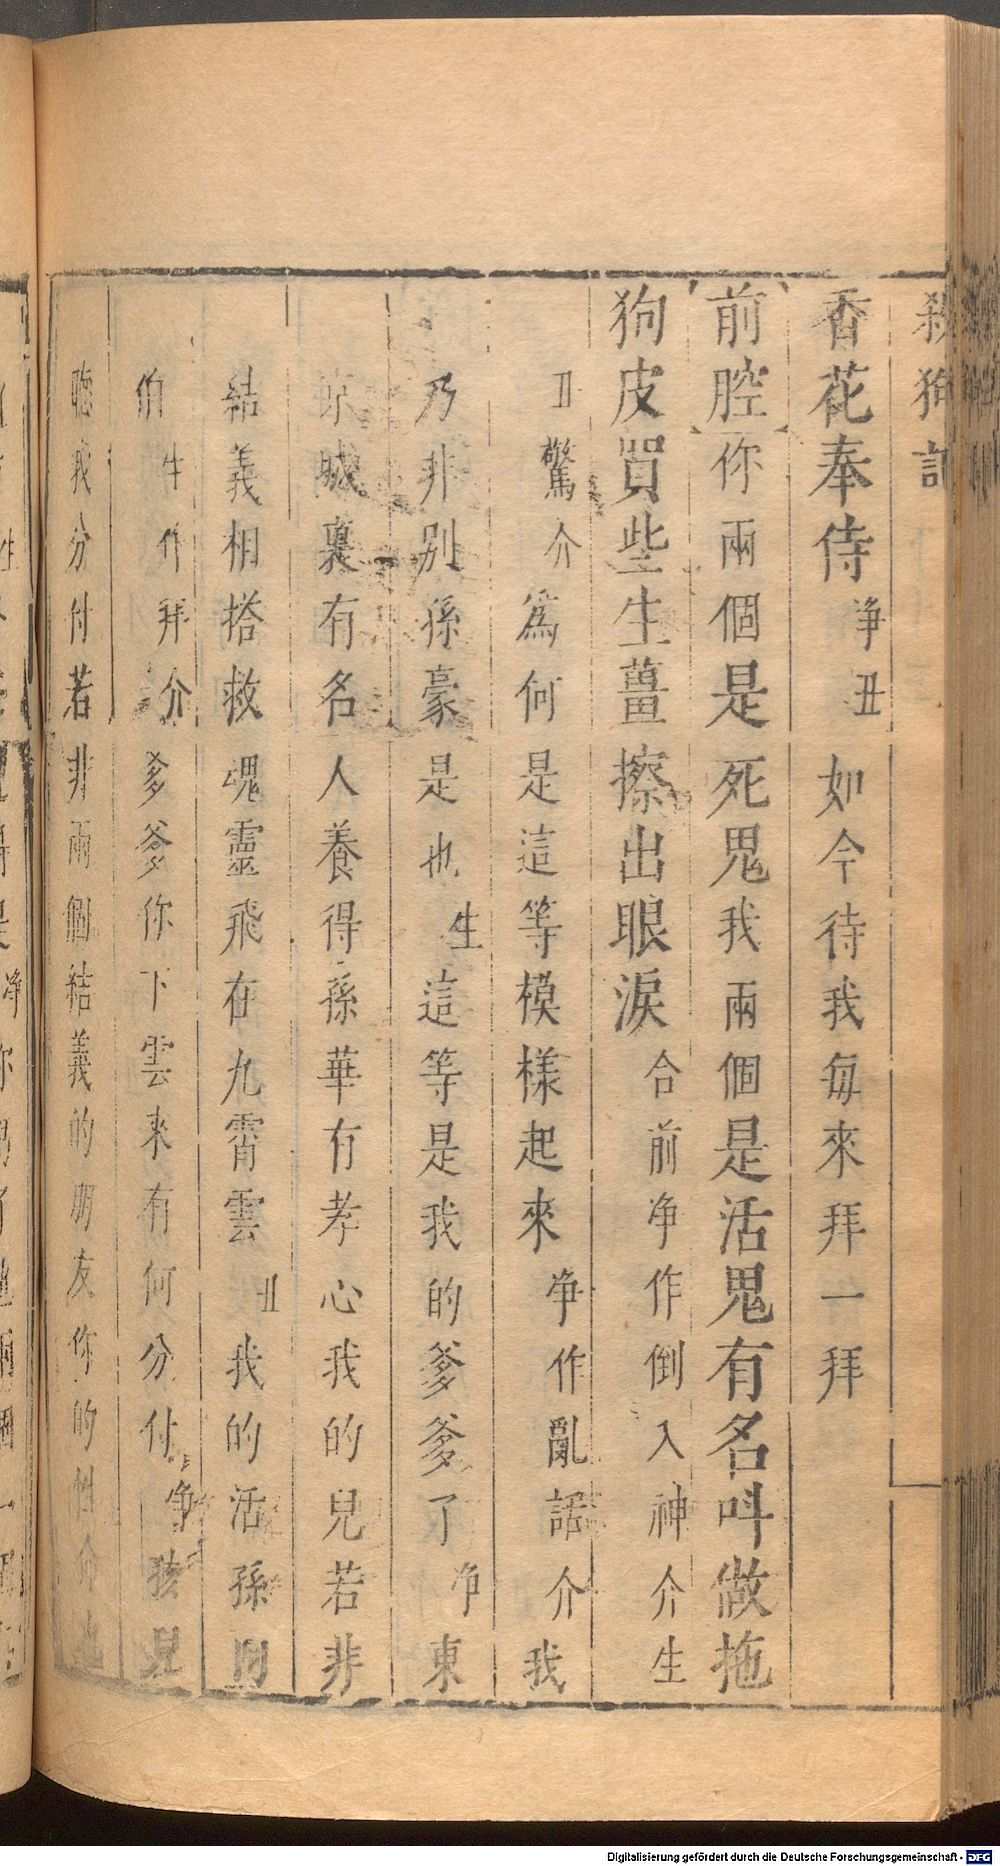 殺狗記
香花奉侍淨丑如今待我每來拜一拜
前腔你兩個是死鬼我兩個是活鬼有名叫做拖
狗皮買些生薑擦出眼淚合前淨作倒入神介生
丑驚介為何是這等模樣起來淨作亂話介我
乃非別孫豪是也生這等是我的爹爹了淨東
京城裏有名人養得孫華有孝心我的兒若非
結義相搭救魂靈飛在九霄雲丑我的活孫
伯生作拜介爹爹你下雲來有何分付淨孩兒
聽我分付若非兩個結義的朋友你的性命
Digitalisierung gefördert durch die Deutsche Forschungsgemeinschaft - DFG